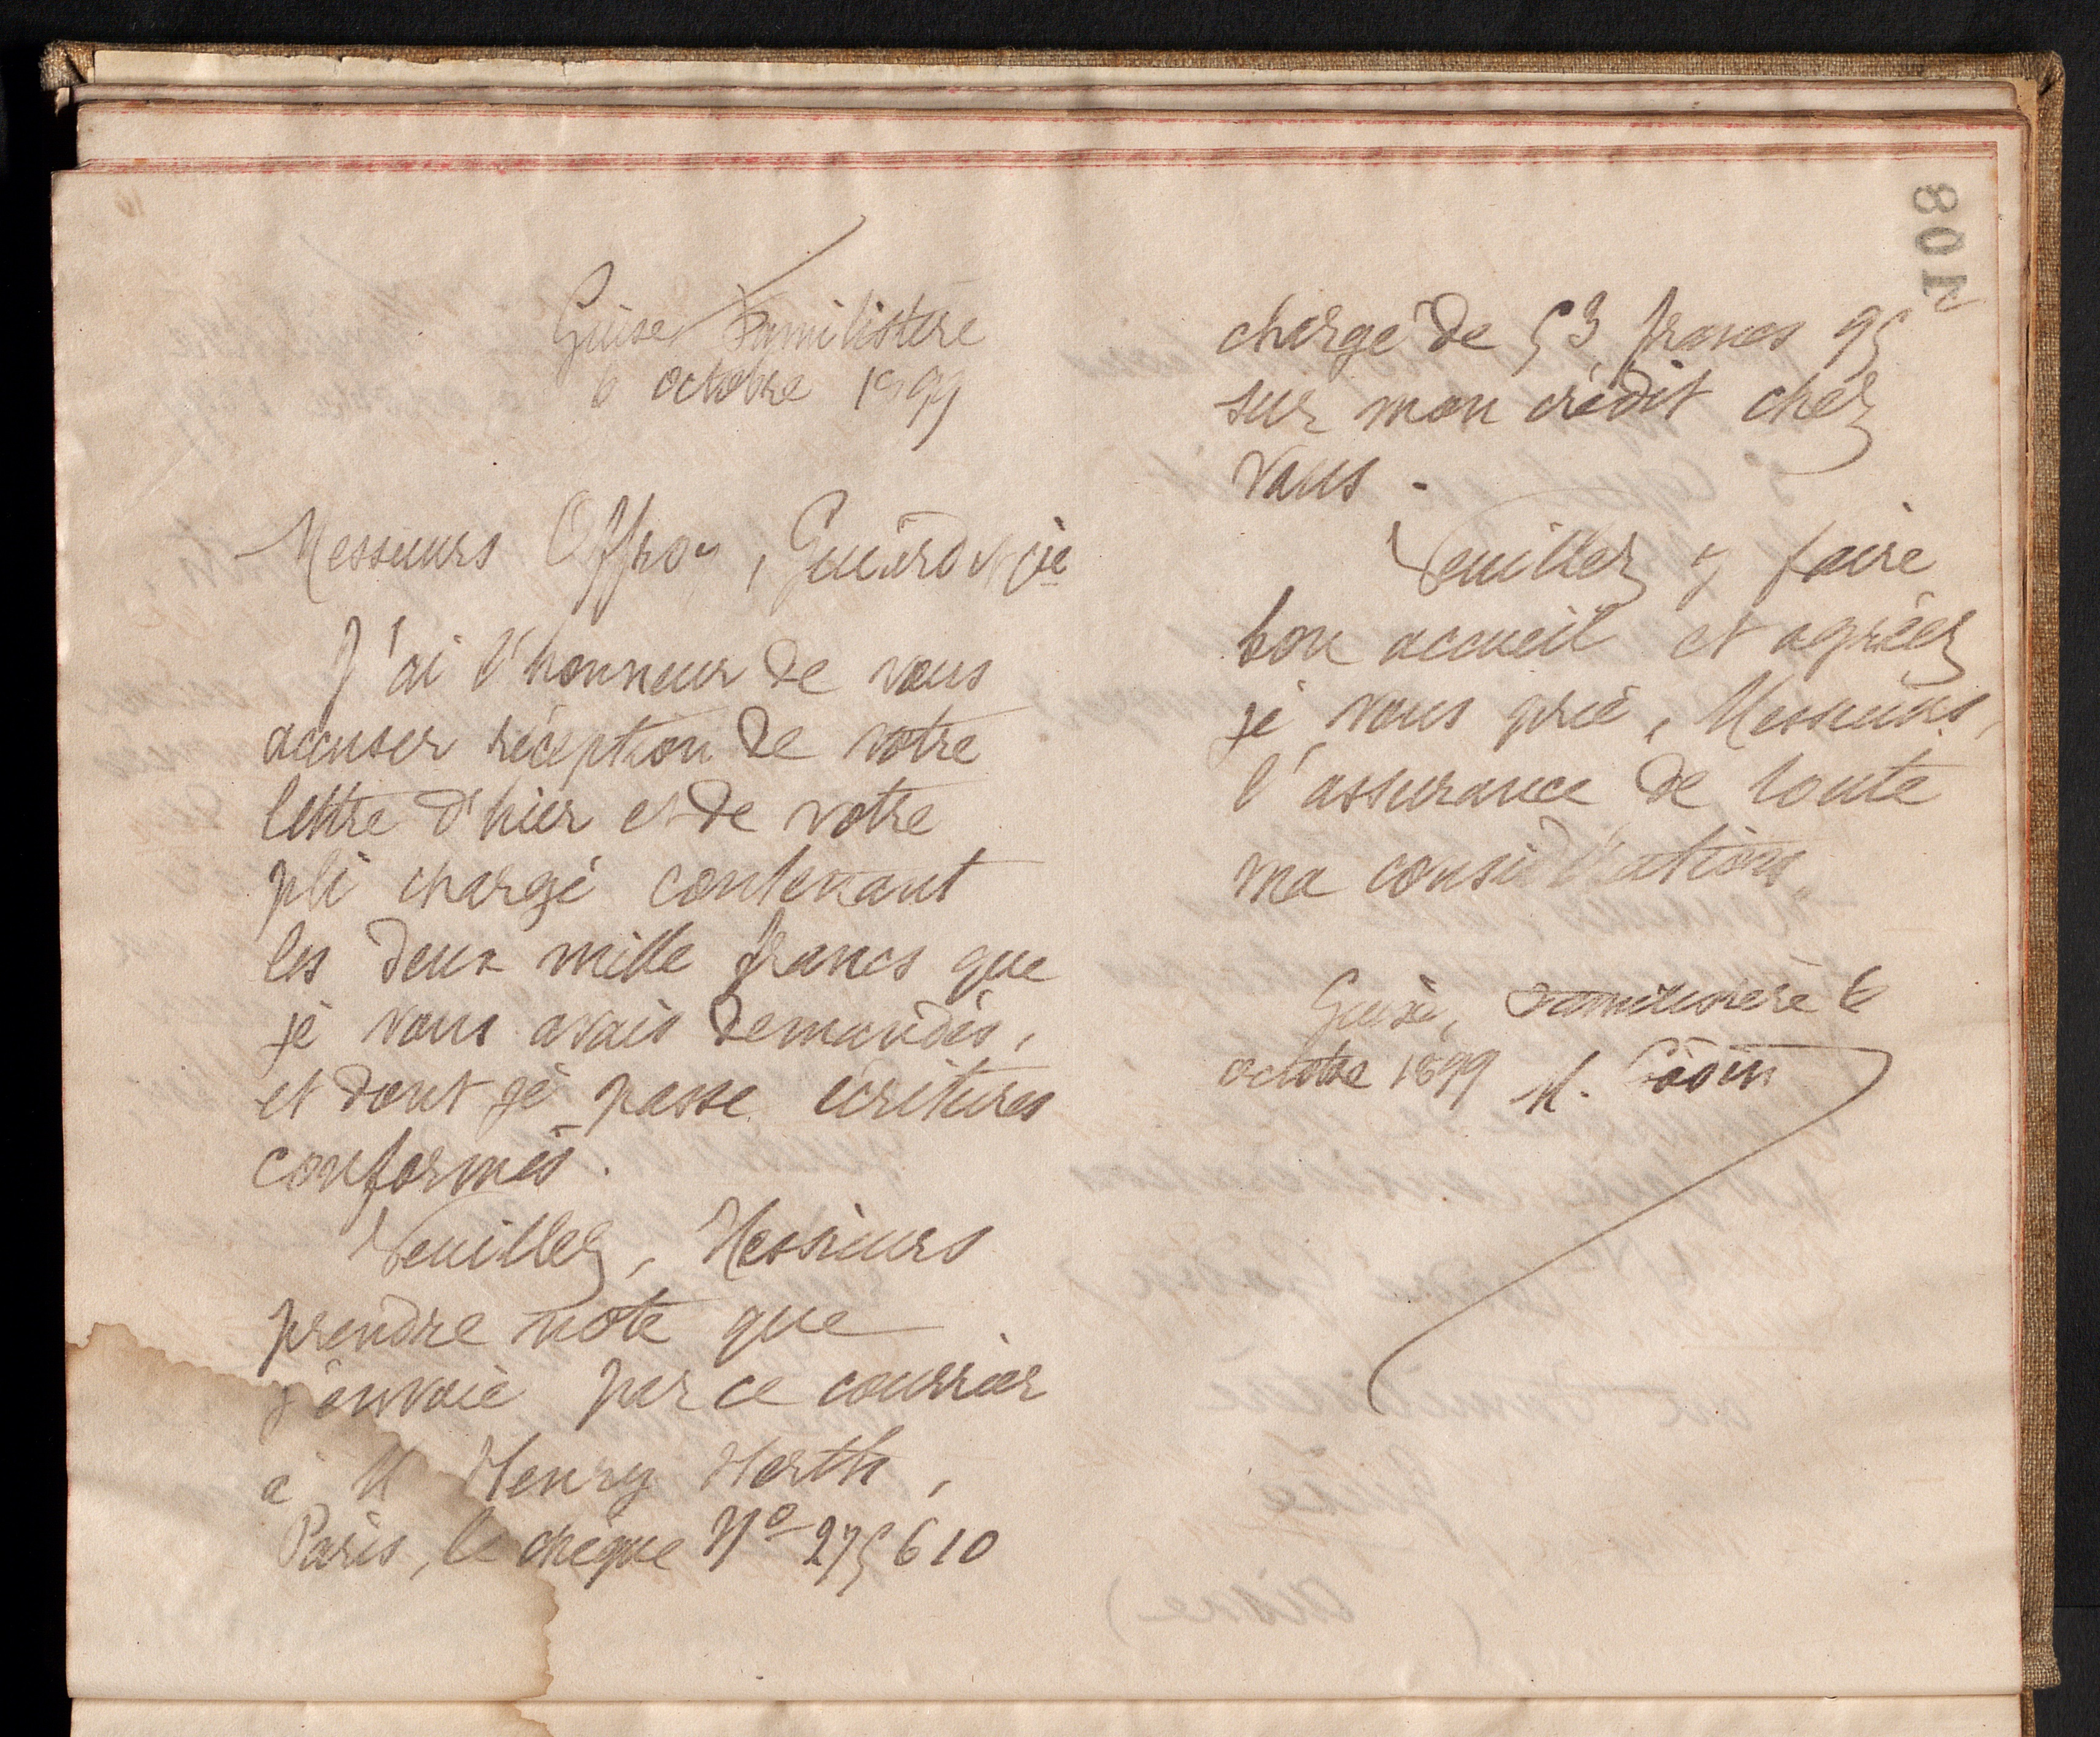 Guise Familistère
6 octobre 1899
Messieurs Offroy, Guiard & Cie
J'ai l'honneur de vous
accuser réception de votre
lettre d'hier et de votre
pli chargé contenant
les deux mille francs que
je vous avais demandés,
et dont je passe écritures
conformes.
Veuillez, Messieurs
prendre note que
j'envoie par ce courrier
à M Henry North,
Paris, le chèque No 275610
108
chargé de 53 francs 95
sur mon crédit chez
vous.
Veuillez y faire
bon accueil et agréez
je vous prie, Messieurs,
l'assurance de toute
ma considération.
Guise, Familistère 6
octobre 1899 M. Godin